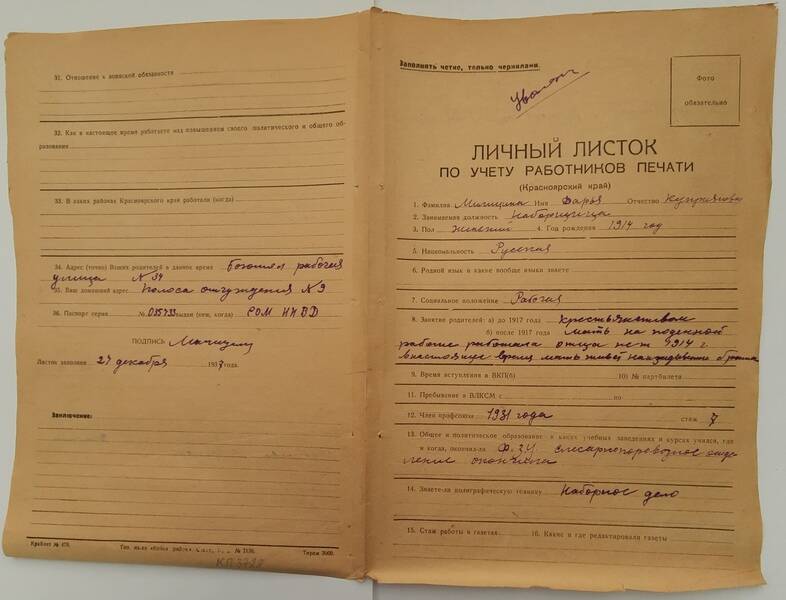 31. Отношение к воинской обязанности
32. Как в настоящее время работаете над повышением своего политического и общего об-
разования
33. В каких районах Красноярского края работали (когда)
34. Адрес (точно) Ваших родителей в данное время Боготол рабочая
улица N 34
35. Ваш домашний адрес Полоса отчуждения N 9
36. Паспорт серия № 035733 выдан (кем, когда) РОМ НКВД
ПОДПИСЬ
Листок заполнен 27 декабря 1937 года.
Заключение:
Крайлит № 478. Тип. изд-ва № 2136. Тираж 3000.
КП 3728
Заполнять четко, только чернилами.
Уволен
Фото
обязательно
ЛИЧНЫЙ ЛИСТОК
ПО УЧЕТУ РАБОТНИКОВ ПЕЧАТИ
(Красноярский край)
1. Фамилия Имя Дарья Отчество Куприяновна
2. Занимаемая должность Наборщица
3. Пол Женский 4. Год рождения 1914 год
5. Национальность Русская
6. Родной язык и какие вообще языки знаете
7. Социальное положение Рабочая
8. Занятие родителей: а) до 1917 года крестьянством
б) после 1917 года мать на поденной
работе работала отца нет 1914 г.
в настоящее время мать живет на иждивении брата
9. Время вступления в ВКП(б) 10) № партбилета
11. Пребывание в ВЛКСМ с по
12. Член профсоюза 1931 года стаж 7
13. Общее и политическое образование: в каких учебных заведениях и курсах учился, где
и когда, окончил-ла Ф.З.У. слесарнопаровозное отде
ление окончила
14. Знаете-ли полиграфическую технику Наборное дело
15. Стаж работы в газетах. 16. Какие и где редактировали газеты